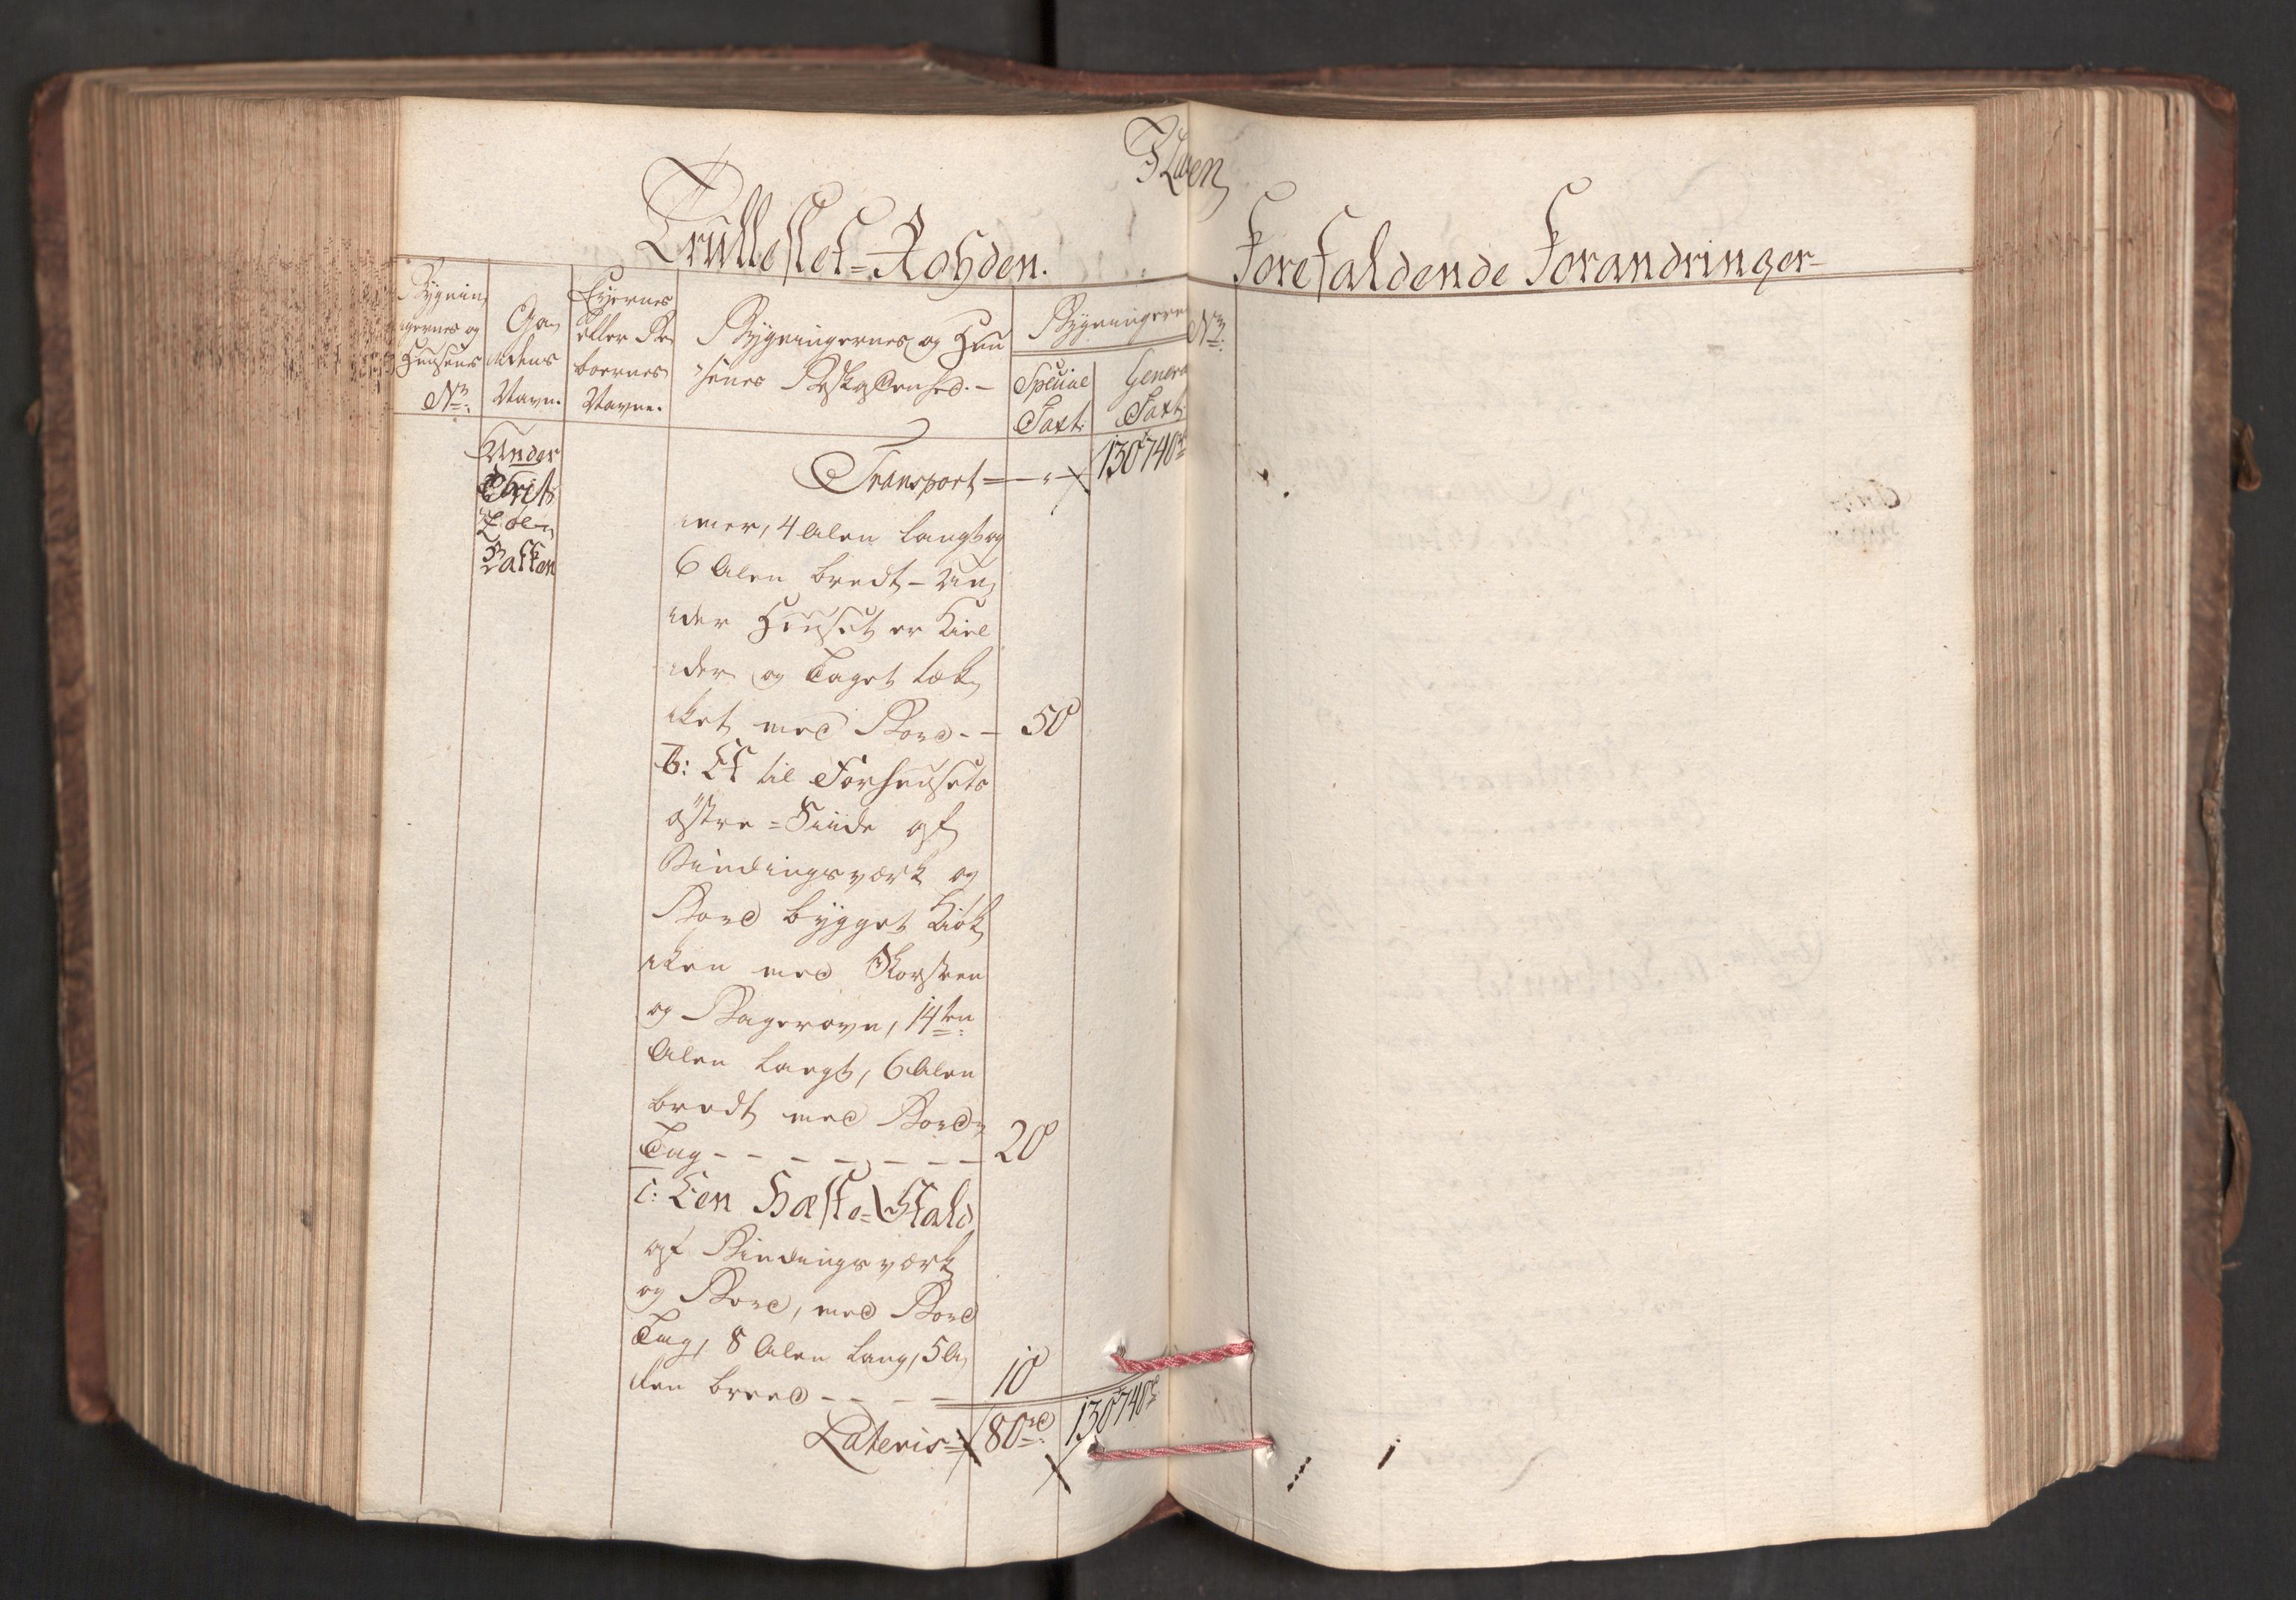 Trullesløf-Rohden.
Forefaldende Forandringer
Bygnin,
gernes og
Huusens
No.
Gaar,
dens
Navn.
Eyernes
eller Be,
boernes
Navne.
Bygningernes og Huu
senes Beskaffenhed.-
Bygningernes
Special
Taxt.
General
Taxt.
No.
Under
Balken
Transport = 130740
mer, 4 Alen langt og
6 Alen bredt - Un,
der Huuset er Kiel
der og Taget tæk,
ket med Bord - - 50
b: Et til Forhuusets
østre-Siide af
Bindingsværk og
Bord bygget Kiøk,
ken med Skorsteen
og Bagerovn, 14ten
Alen langt, 6 Alen
bredt med Bord,
Tag - - - - - - - 20
c: Een Hæste-Stald
af Bindingsværk
og Bord, med Bord
Tag, 8 Alen lang, 5 A,
len breed - - - - 10
Lateris = 80rd 130740